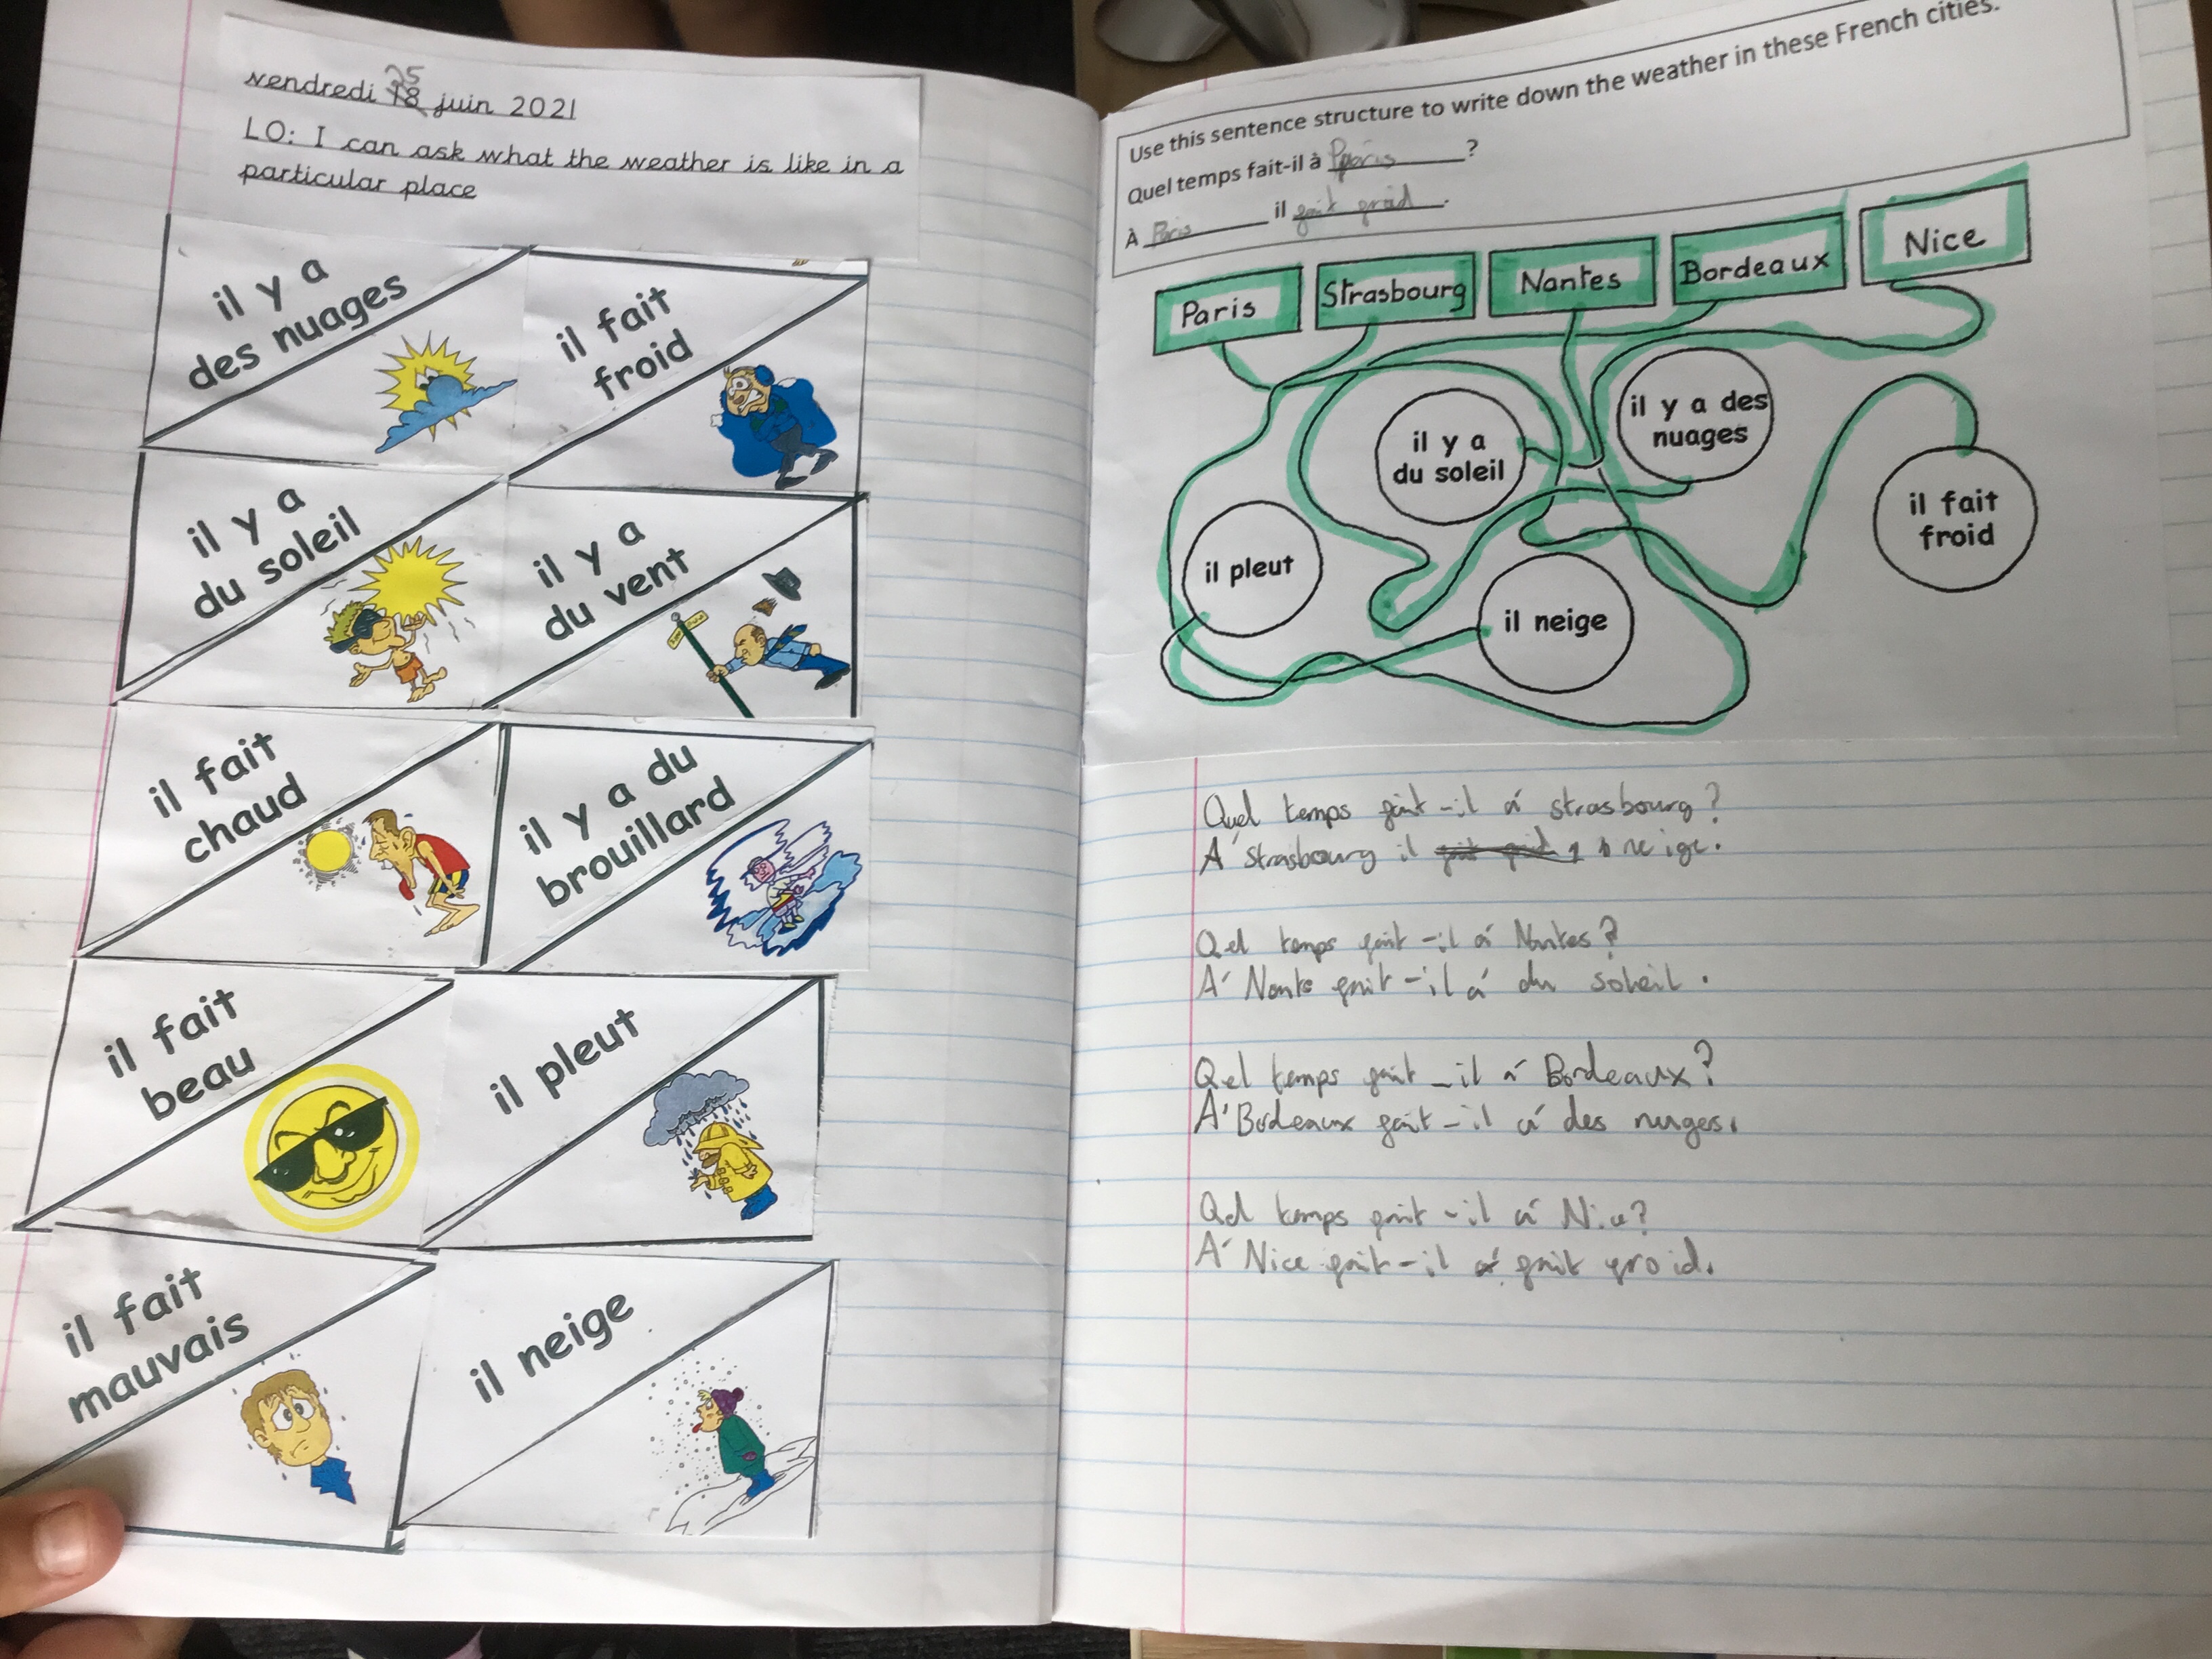 vendredi 25 18 juin 2021
LO: I can ask what the weather is like in a
particular place
il y a
des nuages
il fait
froid
il y a
du soleil
il y a
du vent
il fait
chaud
il y a du
brouillard
il fait
beau
il pleut
il fait
mauvais
il neige
Use this sentence structure to write down the weather in these French cities.
Quel temps fait-il à Paris ?
À Paris il fait froid.
Paris
Strasbourg
Nantes
Bordeaux
Nice
il y a
du soleil
il y a des
nuages
il fait
froid
il pleut
il neige
Quel temps fait-il á strasbourg?
Á Strasbourg il neige.
Qel temps fait-il á Nantes?
Á Nants fait-il á du soleil.
Qel temps fait-il á Bordeaux?
Á Bordeaux fait-il á des nuges.
Qel temps fait-il á Nice?
Á Nice fait-il fait froid.